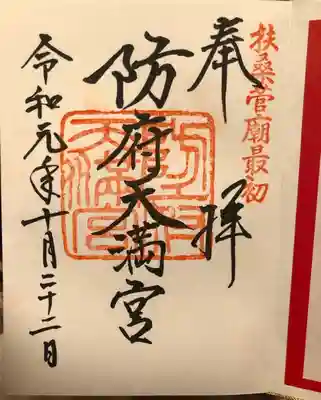 扶桑菅廟最初
奉拝
防府天満宮
令和元年十月二十二日